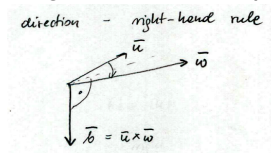 direction - right-hand rule
ū
w̄
b̄ = ū × w̄